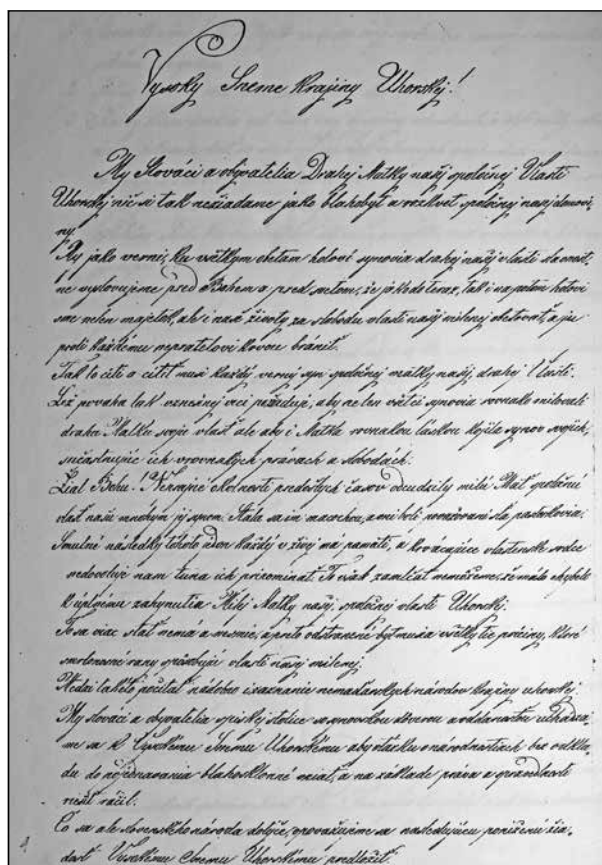 Vysoký Sneme Krajiny Uhorskéj!
My Slováci a obyvatelia Drahej Matky našéj spoločnéj Vlasti
Uhorskéj nič si tak nežiadame jako blahobyt a rozkvet spoločnej našej domovi
ny.
My jako verní, ku všetkým obetam hotoví synovia drahej našéj vlasti slavnost
ne vyslovujeme pred Bohem a pred svetom, že jak doteraz, tak i na potom hotoví
sme nelen majetok, ale i naše životy, za slobodu vlasti našéj milenej obetovať, a ju
proti každému nepratelovi krvou brániť.
Tak to cíti a cítiť musí každý verný syn spoločnej mátky našéj, drahej Vlasti.
Lež povaha tak vznešenej veci požaduje, aby ne len všetci synovia rovnako milovali
drahú Matku svoju vlasť ale aby i Matka rovnakou láskou kojila synov svojich,
súčastnujúc ich v rovnakých právach a slobodách.
Žiaľ Bohu! Neprajné okolnosti predošlých časov odcudzily milú Mať spoločnú
vlasť našu mnohým jej synom. Stala sa im macochou, a oni boli považovaní za pastorkov.
Smutné následky tohoto
každý v živej má pamäti, a krvácajúce vlastenské srdce
nedovoluje nam tuna ich pripomínať. To však zamlčať nemôžeme, že málo chybelo
k úplnému zahynutiu Milej Matky našéj, spoločnej vlasti Uhorskéj.
To sa viac stať nemá a nesmie, a preto odstranené byť musia všetky tie príčiny, které
smrtonosné rany spôsobuju vlasti našej milenej.
Medzi takéto počítať nádobno i
nemaďarských národov krajiny uhorskéj.
My slováci a obyvatelia spišskej stolice so synovskou dôverou a oddanosťou uchádza
me sa k Vysokému Snemu Uhorskému aby otázku o národnostiach bez odkla
du do pojednavania blahosklonne vziať, a na základe práva a spravedlnosti
riešiť ráčil.
Čo sa ale slovenského národa dotýče, opovažujeme sa nasledujúcu poníženú žia
dosť Vysokému Snemu Uhorskému predložiť.